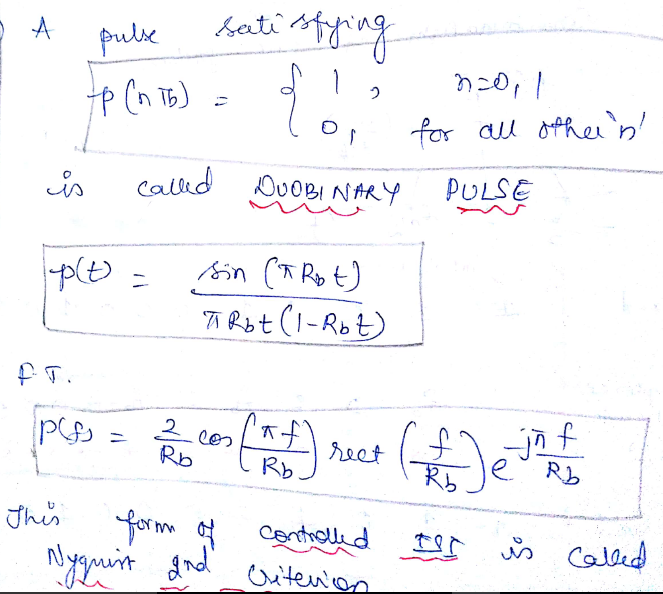 A pulse satisfying
p(nTb) = { 1, n=0, 1
0, for all other 'n'
is called DUOBINARY PULSE
p(t) = sin (πRbt) / πRbt(1-Rbt)
F.T.
P(f) = 2/Rb cos (πf/Rb) rect (f/Rb) e^-jπf/Rb
This form of controlled ISI is called
Nyquist 2nd Criterion